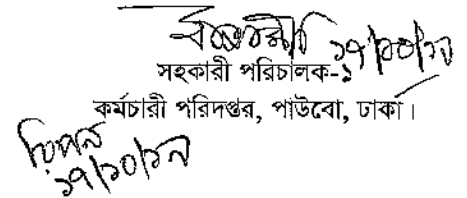 ১৭/১০/১৯
সহকারী পরিচালক-১
কর্মচারী পরিদপ্তর, পাউবো, ঢাকা।
রিপন
১৭/১০/১৯